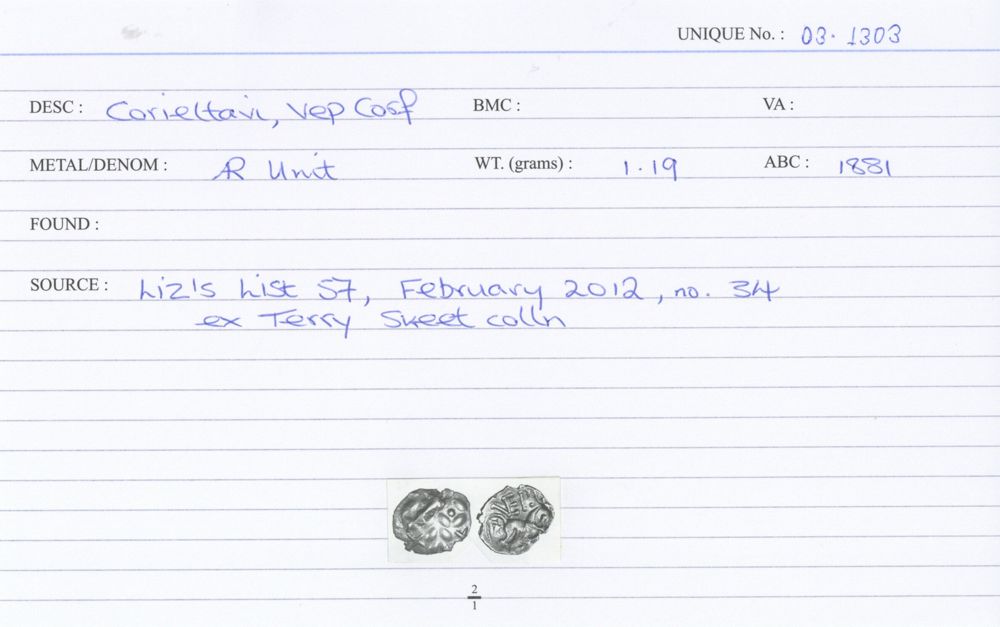 UNIQUE No. : 03. 1303
DESC : Corieltavi, Vep Corf BMC : VA :
METAL/DENOM : AR Unit WT. (grams) : 1.19 ABC : 1881
FOUND :
SOURCE : Liz's List 57, February 2012, no. 34
ex Terry Sweet colln
2
1